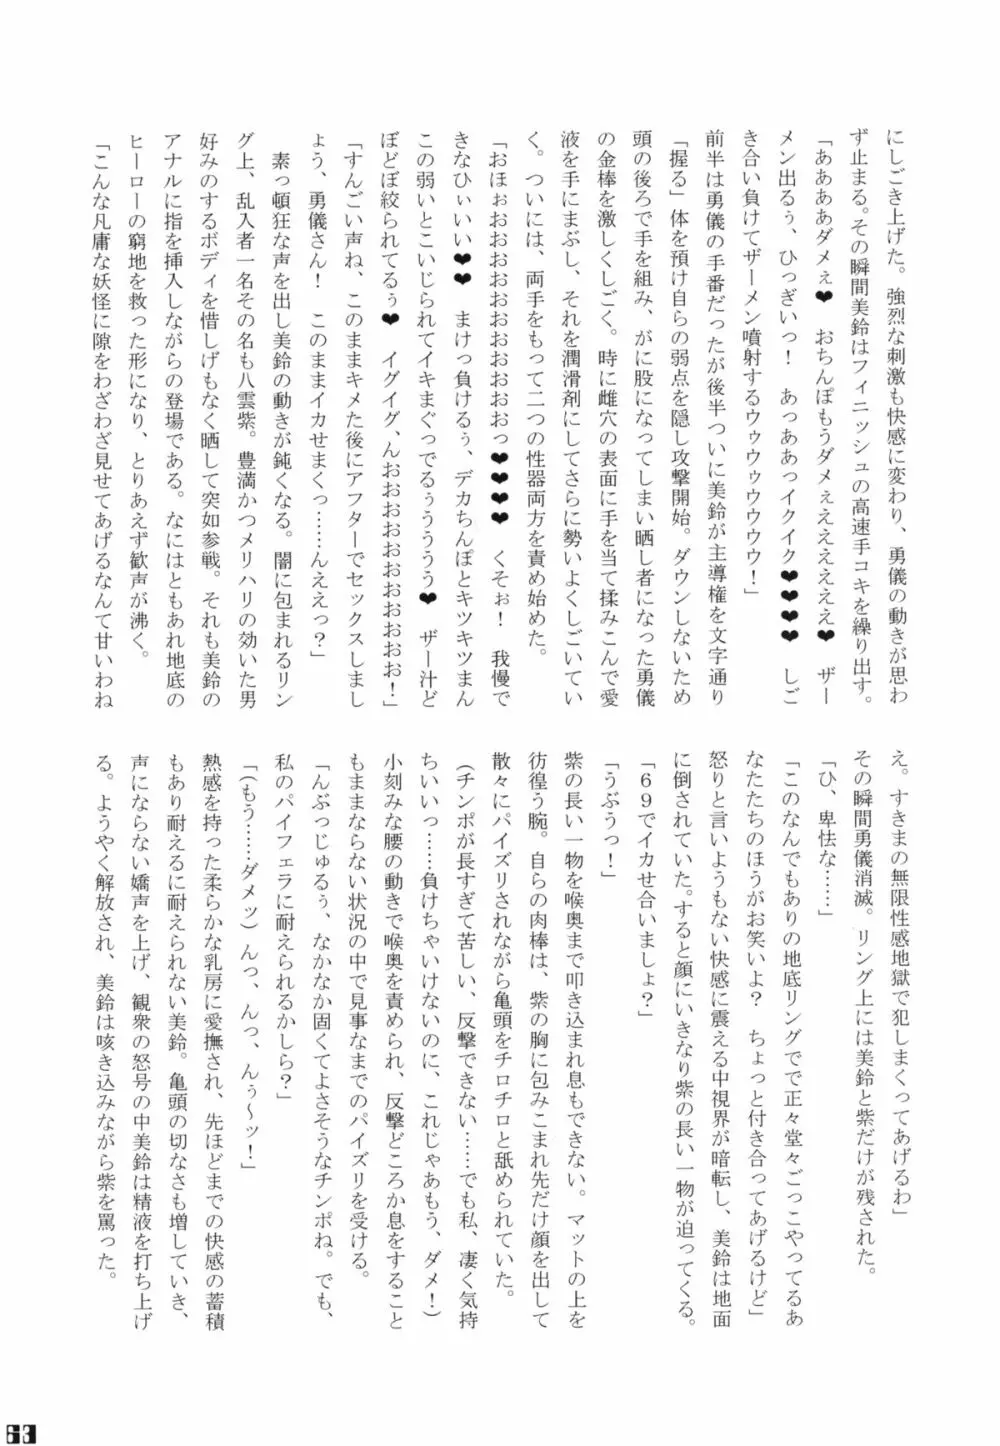 にしごき上げた。強烈な刺激も快感に変わり、勇儀の動きが思わ
ず止まる。その瞬間美鈴はフィニッシュの高速手コキを繰り出す。
「ああああダメぇ❤　おちんぽもうダメぇえええええ❤　ザー
メン出るぅ、ひっぎいっ！　あっああっイクイク❤❤❤❤　しご
き合い負けてザーメン噴射するウゥウゥウウウウ！」
前半は勇儀の手番だったが後半ついに美鈴が主導権を文字通り
「握る」体を預け自らの弱点を隠し攻撃開始。ダウンしないため
頭の後ろで手を組み、がに股になってしまい晒し者になった勇儀
の金棒を激しくしごく。時に雌穴の表面に手を当て揉みこんで愛
液を手にまぶし、それを潤滑剤にしてさらに勢いよくしごいてい
く。ついには、両手をもって二つの性器両方を責め始めた。
「おほぉおおおおおおおおおおおっ❤❤❤❤　くそぉ！　我慢で
きなひぃいい❤❤　まけっ負けるぅ、デカちんぽとキツキツまん
この弱いとこいじられてイキまぐっでるぅぅううう❤　ザー汁ど
ぼどぼ絞られてるぅ❤　イグイグ、んおおおおおおおおおおお！」
「すんごい声ね、このままキメた後にアフターでセックスしまし
ょう、勇儀さん！　このままイカせまくっ……んええっ？」
　素っ頓狂な声を出し美鈴の動きが鈍くなる。闇に包まれるリン
グ上、乱入者一名その名も八雲紫。豊満かつメリハリの効いた男
好みのするボディを惜しげもなく晒して突如参戦。それも美鈴の
アナルに指を挿入しながらの登場である。なにはともあれ地底の
ヒーローの窮地を救った形になり、とりあえず歓声が沸く。
「こんな凡庸な妖怪に隙をわざわざ見せてあげるなんて甘いわね
え。すきまの無限性感地獄で犯しまくってあげるわ」
その瞬間勇儀消滅。リング上には美鈴と紫だけが残された。
「ひ、卑怯な……」
「このなんでもありの地底リングでで正々堂々ごっこやってるあ
なたたちのほうがお笑いよ？　ちょっと付き合ってあげるけど」
怒りと言いようもない快感に震える中視界が暗転し、美鈴は地面
に倒されていた。すると顔にいきなり紫の長い一物が迫ってくる。
「69でイカせ合いましょ？」
「うぶうっ！」
紫の長い一物を喉奥まで叩き込まれ息もできない。マットの上を
彷徨う腕。自らの肉棒は、紫の胸に包みこまれ先だけ顔を出して
散々にパイズリされながら亀頭をチロチロと舐められていた。
（チンポが長すぎて苦しい、反撃できない……でも私、凄く気持
ちいいっ……負けちゃいけないのに、これじゃあもう、ダメ！）
小刻みな腰の動きで喉奥を責められ、反撃どころか息をすること
もままならない状況の中で見事なまでのパイズリを受ける。
「んぶっじゅるぅ、なかなか固くてよさそうなチンポね。でも、
私のパイフェラに耐えられるかしら？」
「（もう……ダメッ）んっ、んっ、んぅ～ッ！」
熱感を持った柔らかな乳房に愛撫され、先ほどまでの快感の蓄積
もあり耐えるに耐えられない美鈴。亀頭の切なさも増していき、
声にならない嬌声を上げ、観衆の怒号の中美鈴は精液を打ち上げ
る。ようやく解放され、美鈴は咳き込みながら紫を罵った。
63